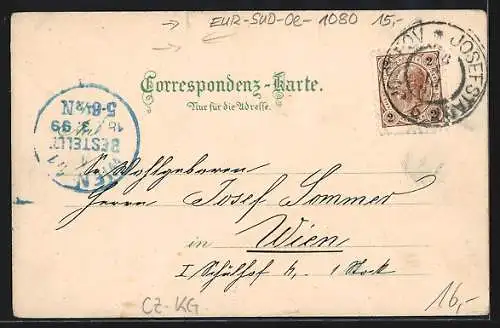 EUR-SUD-OE- 1080 15,-
JOSEFSTA
2 2
Correspondenz-Karte.
Nur für die Adresse.
WIEN
BESTELLT
18 3. 99
5-6½N
Sr. Wohlgeboren
Herrn Josef Sommer
in Wien
I Schulhof 4, 1 Stock
CZ-KG
16,-